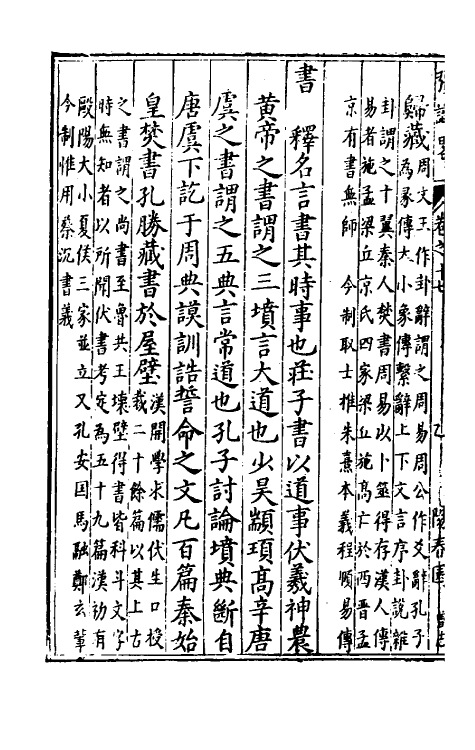 卷之十七
歸藏周文王作卦辭謂之周易周公作爻辭孔子
為彖傳大小象傳繫辭上下文言序卦說雜
卦謂之十翼秦人焚書周易以卜筮得存漢人傳
易者施孟梁丘京氏四家梁丘施高亡於西晋孟
京有書無師　今制取士推朱熹本義程頤易傳
書　釋名言書其時事也莊子書以道事伏羲神農
黃帝之書謂之三墳言大道也少昊顓頊高辛唐
虞之書謂之五典言常道也孔子討論墳典斷自
唐虞下訖于周典謨訓誥誓命之文凡百篇秦始
皇焚書孔勝藏書於屋壁漢開學求儒伏生口授
裁二十餘篇以其上古
之書謂之尚書至魯共王壞壁得書皆科斗文字
時無知者以所聞伏書考定為五十九篇漢初有
歐陽大小夏侯三家並立又孔安国馬融鄭玄輩
今制惟用蔡沉書義